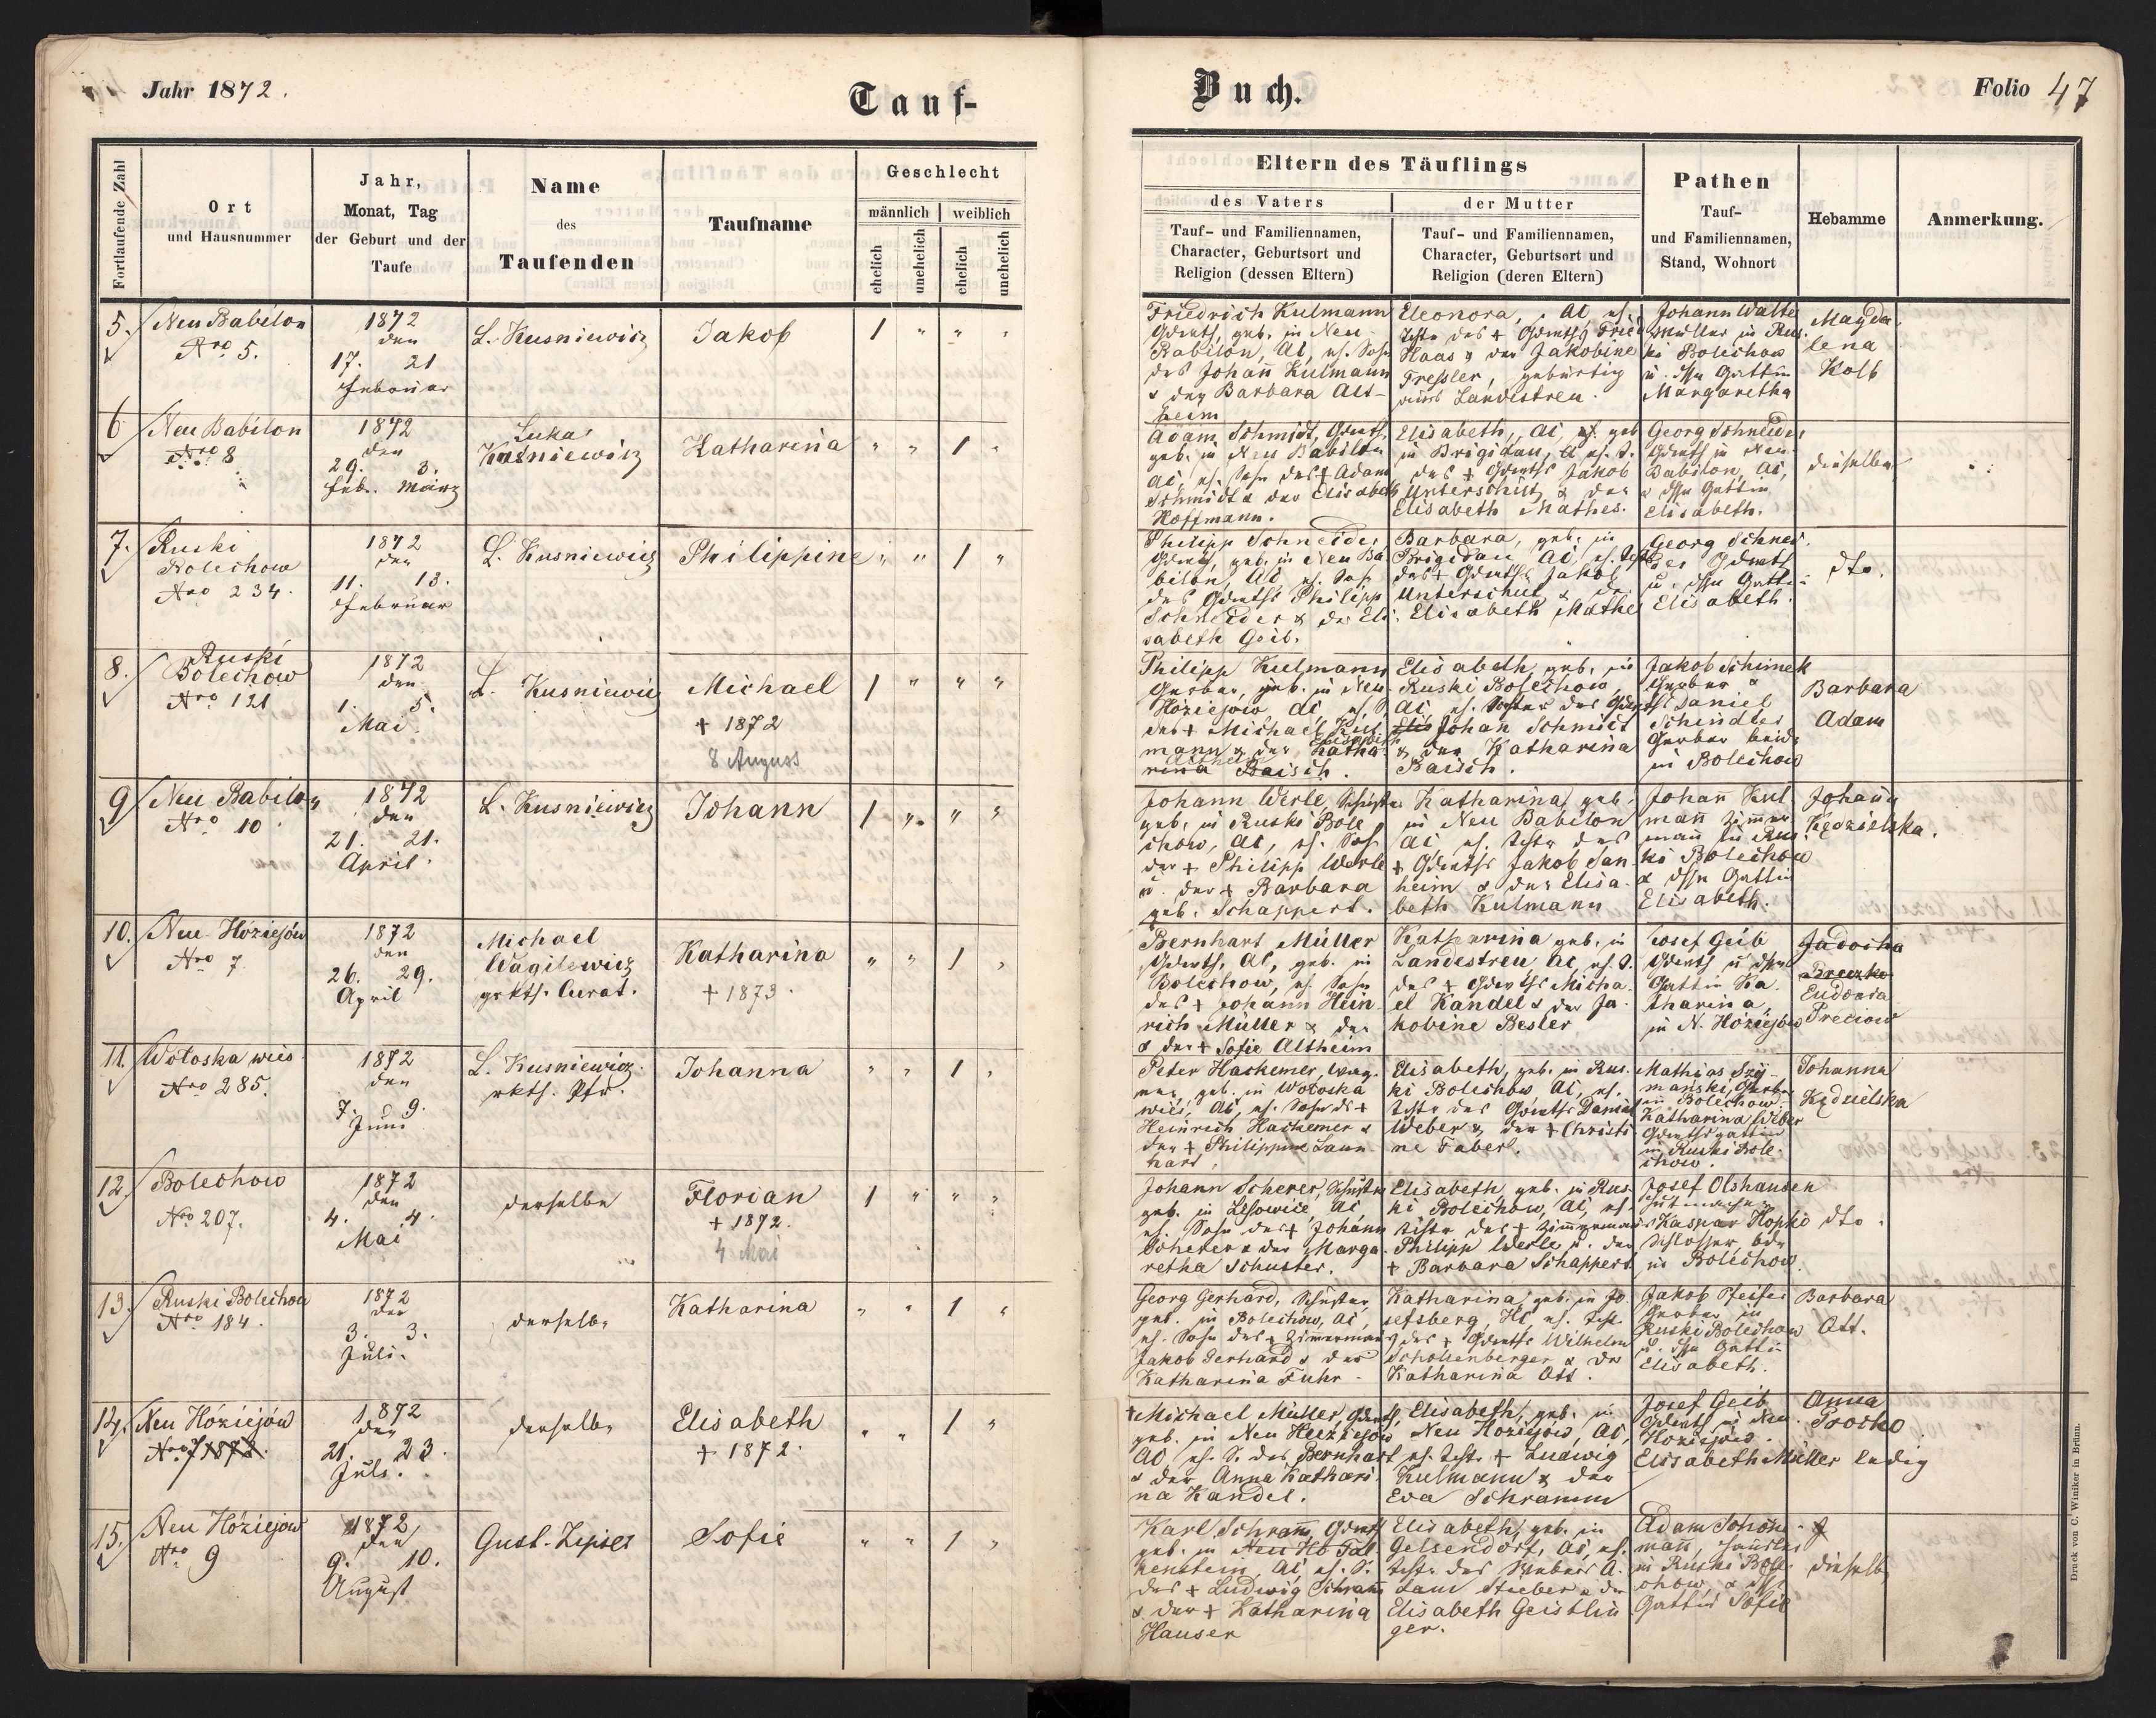 Jahr 1872.
Tauf-
Buch.
Folio 47
Fortlaufende Zahl
Ort
und Hausnummer
Jahr,
Monat, Tag
der Geburt und der
Taufe
Name
des
Taufenden
Taufname
Geschlecht
männlich
weiblich
ehelich
unehelich
ehelich
unehelich
Eltern des Täuflings
des Vaters
Tauf- und Familiennamen,
Character, Geburtsort und
Religion (dessen Eltern)
der Mutter
Tauf- und Familiennamen,
Character, Geburtsort und
Religion (deren Eltern)
Pathen
Tauf-
und Familiennamen,
Stand, Wohnort
Hebamme
Anmerkung.
5.
Neu Babilon
Nro 5.
1872
den
17. 21
Februar
L. Kusniewicz
Jakob
1 " " "
Friedrich Kulmann
geb. in Neu
Babilon, AC, eh. Sohn
des Johann Kulmann
& der Barbara Alt-
heim
Eleonora, AC eh.
Haas & der Jakobine
Fressler, gebürtig
aus Landestreu.
Johann Walte
Müller in Rus
ki Bolechow
u. Gattin
Margaretha
Magda
lena
Kolb
6
Neu Babilon
Nro 8
1872
den
29. 3.
Feb. März
Luka
Kusniewicz
Katharina
" " 1 "
Adam Schmidt,
geb. in Neu Babilon
AC, eh. Sohn des + Adam
Schmidt & der Elisabeth
Hoffmann.
Elisabeth, AC, geb
in Brigidau, eh. T.
des + Jakob
Unterschüt & der
Elisabeth Mathes.
Georg Schneider
in Neu
Babilon, AC,
Gattin
Elisabeth.
dieselbe
7.
Ruski
Bolechow
Nro 234.
1872
den
11. 13.
Februar
L. Kusniewicz
Philippine
" " 1 "
Philipp Schneider
geb. in Neu Ba
bilon, AC, eh. Sohn
des Philipp
Schneider & der Eli
sabeth Geib.
Barbara, geb. in
Brigidau AC, eh.
des + Jakob
Unterschut, & der
Elisabeth Mathe
Georg Schnei
der
u. Gattin
Elisabeth.
dto.
8.
Ruski
Bolechow
Nro 121
1872
den
1. 5.
Mai.
L. Kusniewicz
Michael
+ 1872
8 August
1 " " "
Philipp Kulmann
Gerber, geb. in Neu
Hoziejow AC eh. S.
des + Michael Kul
mann & der Elisabeth
Altheim
Elisabeth geb. in
Ruski Bolechow,
AC eh. Tochter des
Johan Schmidt
& der Katharina
Baisch.
Jakob Schimek
Gerber &
Daniel
Schindler
Gerber beide
in Bolechow
Barbara
Adam
9
Neu Babilon
Nro 10
1872
den
21. 21.
April.
L. Kusniewicz
Johann
1 " " "
Johann Werle, Schuster
geb. in Ruski Bole
chow, AC, eh. Sohn
der + Philipp Werle
u. der + Barbara
geb. Schappert.
Katharina, geb.
in Neu Babilon
AC eh. des
+ Jakob San
heim & der Elisa
beth Kulmann
Johann Kul
mann Zimmer
mann in Rus
ki Bolechow
& Gattin
Elisabeth.
Johanna
Kędzielska.
10.
Neu Hoziejów
Nro 7
1872
den
26. 29.
April
Michael
Wagilewicz
grkth. Curat.
Katharina
+ 1873.
" " 1 "
Bernhart Müller
AC, geb. in
Bolechow, eh. Sohn
des + Johann Hein
rich Müller & der
& der + Sofie Altheim
Katharina geb. in
Landestreu AC, eh. T.
des + Micha
el Kandel & der Ja
kobine Besler
Josef Geib
Gattin Ka
tharina,
in N. Hoziejów
Eudoxia
Preciow
11.
Wołoska wies
Nro 285.
1872
den
7. 9.
Juni
L. Kusniewicz
rkth. Pfr.
Johanna
" " 1 "
Peter Hachemer, Wag
ner, geb. in Wołoska
wies, AC, eh. Sohn des +
Heinrich Hachemer &
der + Philippine Laun
hard
Elisabeth, geb. in Rus
ki Bolechow AC, eh.
des Daniel
Weber & der + Christi
ne Faberl.
Mathias Szy
manski, Gerber
in Bolechow
Katharina Weber
in Ruski Bole
chow.
Johanna
Kędzielska
12.
Bolechow
Nro 207.
1872
den
4. 4.
Mai
derselbe
Florian
+ 1872.
4 Mai
1 " " "
Johann Scherer, Schuster
geb. in Lisowice AC,
eh. Sohn des + Johann
Scherer & der Marga
retha Schuster.
Elisabeth, geb. in Rus
ki Bolechow, AC, eh.
des + Zimmerman
Philipp Werle u. der
+ Barbara Schappert
Josef Olshausen
Kaspar Hopko
Schlosser, beide
in Bolechow.
dto.
13.
Ruski Bolechow
Nro 184.
1872
den
3. 3.
Juli.
derselbe
Katharina
" " 1 "
Georg Gerhard, Schuster,
geb. in Bolechow, AC,
eh. Sohn des + Zimmerman
Jakob Gerhard & der
Katharina Fuhr
Katharina, geb. in Jo
sefsberg, HC, eh.
des + Wilhelm
Schollenberger & der
Katharina Ott.
Jakob Pfeifer
Gerber in
Ruski Bolechow
u. Gattin
Elisabeth.
Barbara
Ott.
14.
Neu Hoziejów
Nro 7
1872
den
21. 23.
Juli.
derselbe
Elisabeth
+ 1872.
" " 1 "
+ Michael Müller,
geb. in Neu Hoziejow
AC eh. S. des Bernhart
& der Anna Kathari
na Kandel.
Elisabeth, geb. in
Neu Hoziejów, AC,
eh. + Ludwig
Kulmann & der
Eva Schramm
Josef Geib
in Neu
Hoziejow.
Elisabeth Müller ledig
Anna
Procko
15.
Neu Hoziejow
Nro 9
1872
den
9. 10.
August
Gust. Zipser
Sofie
" " 1 "
Karl Schramm,
geb. in Fal
kenstein, AC, eh. S.
des + Ludwig Schram
& der + Katharina
Hauser
Elisabeth, geb. in
Gelsendorf, AC, eh.
des A
dam Stieber & der
Elisabeth Geistlin
ger.
Adam Schöne
mann,
in Ruski Bole
chow, &
Gattin Sofie
dieselbe
Druck von C. Winiker in Brünn.